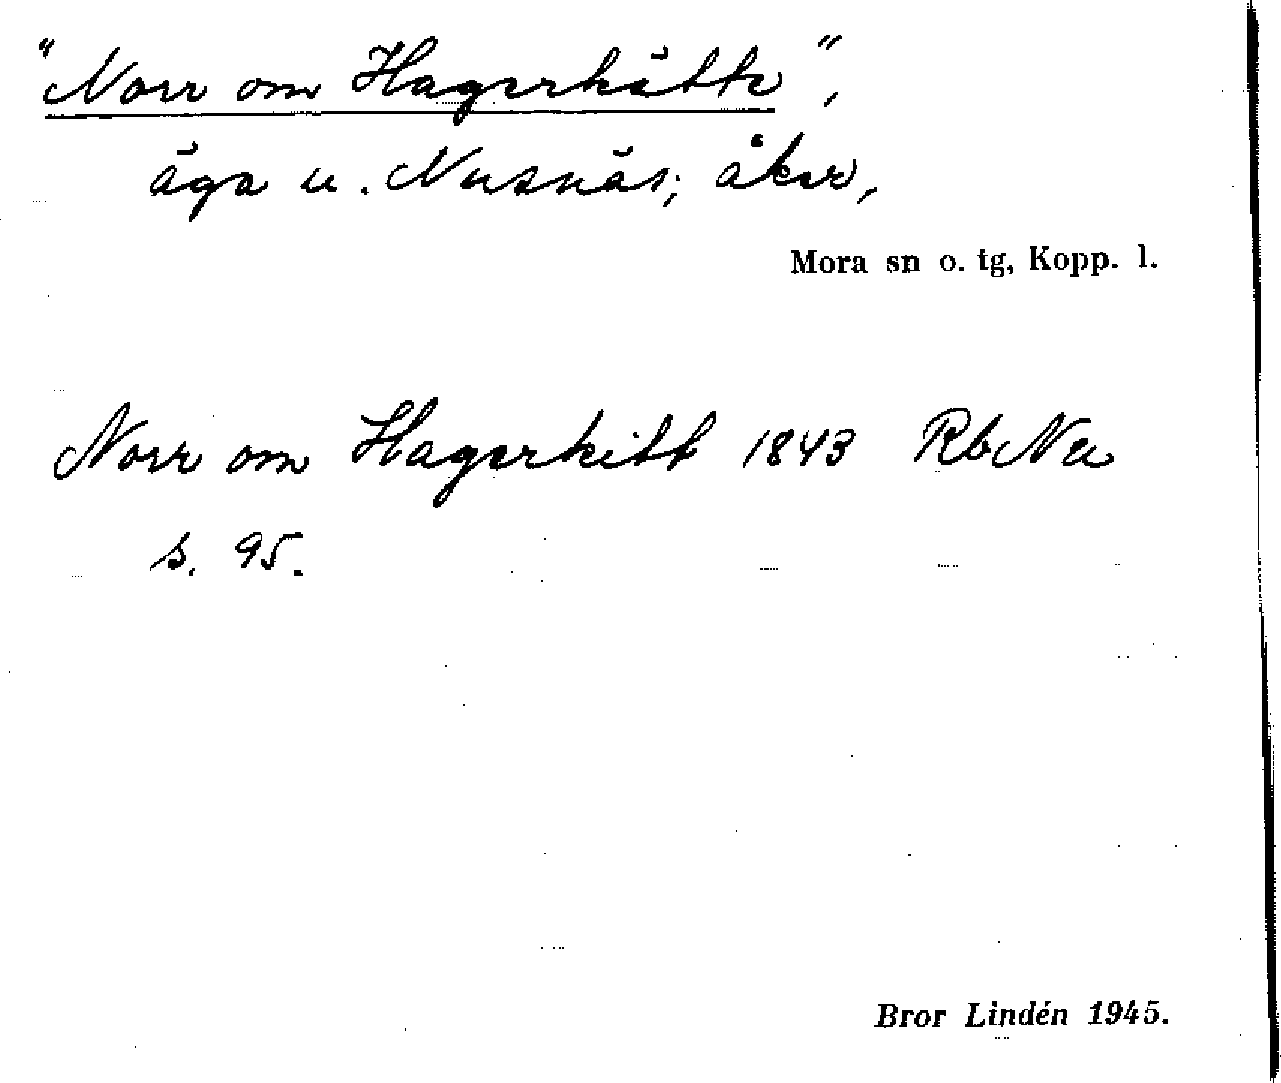 "Norr om Hagerkätte",
äga u. Nusnäs; åker,
Mora sn o. tg, Kopp. l.
Norr om Hagerkitt 1843 RbNu
s. 95.
Bror Lindén 1945.